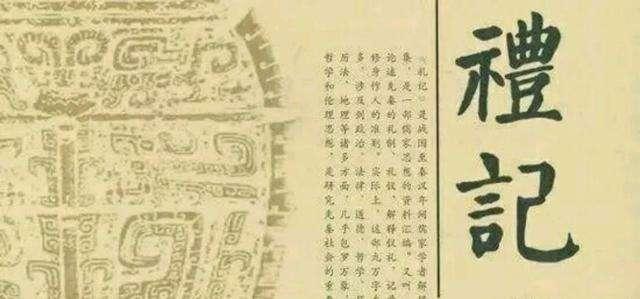 禮記
《礼记》是战国至秦汉年间儒家学者解
集，是一部儒家思想的资料汇编。又叫
论述先秦的礼制、礼仪，解释仪礼，记
修身作人的准则。实际上，这部九万字
多，涉及到政治、法律、道德、哲学、
历法、地理等诸多方面，几乎包罗万象，
哲学和伦理思想，是研究先秦社会的重